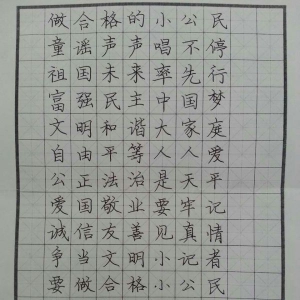 做合格的小公民
童谣声声唱不停
祖国未来率先行
富强民主中国梦
文明和谐大家庭
自由平等人人爱
公正法治是天平
爱国敬业要牢记
诚信友善见真情
争当文明小记者
要做合格小公民